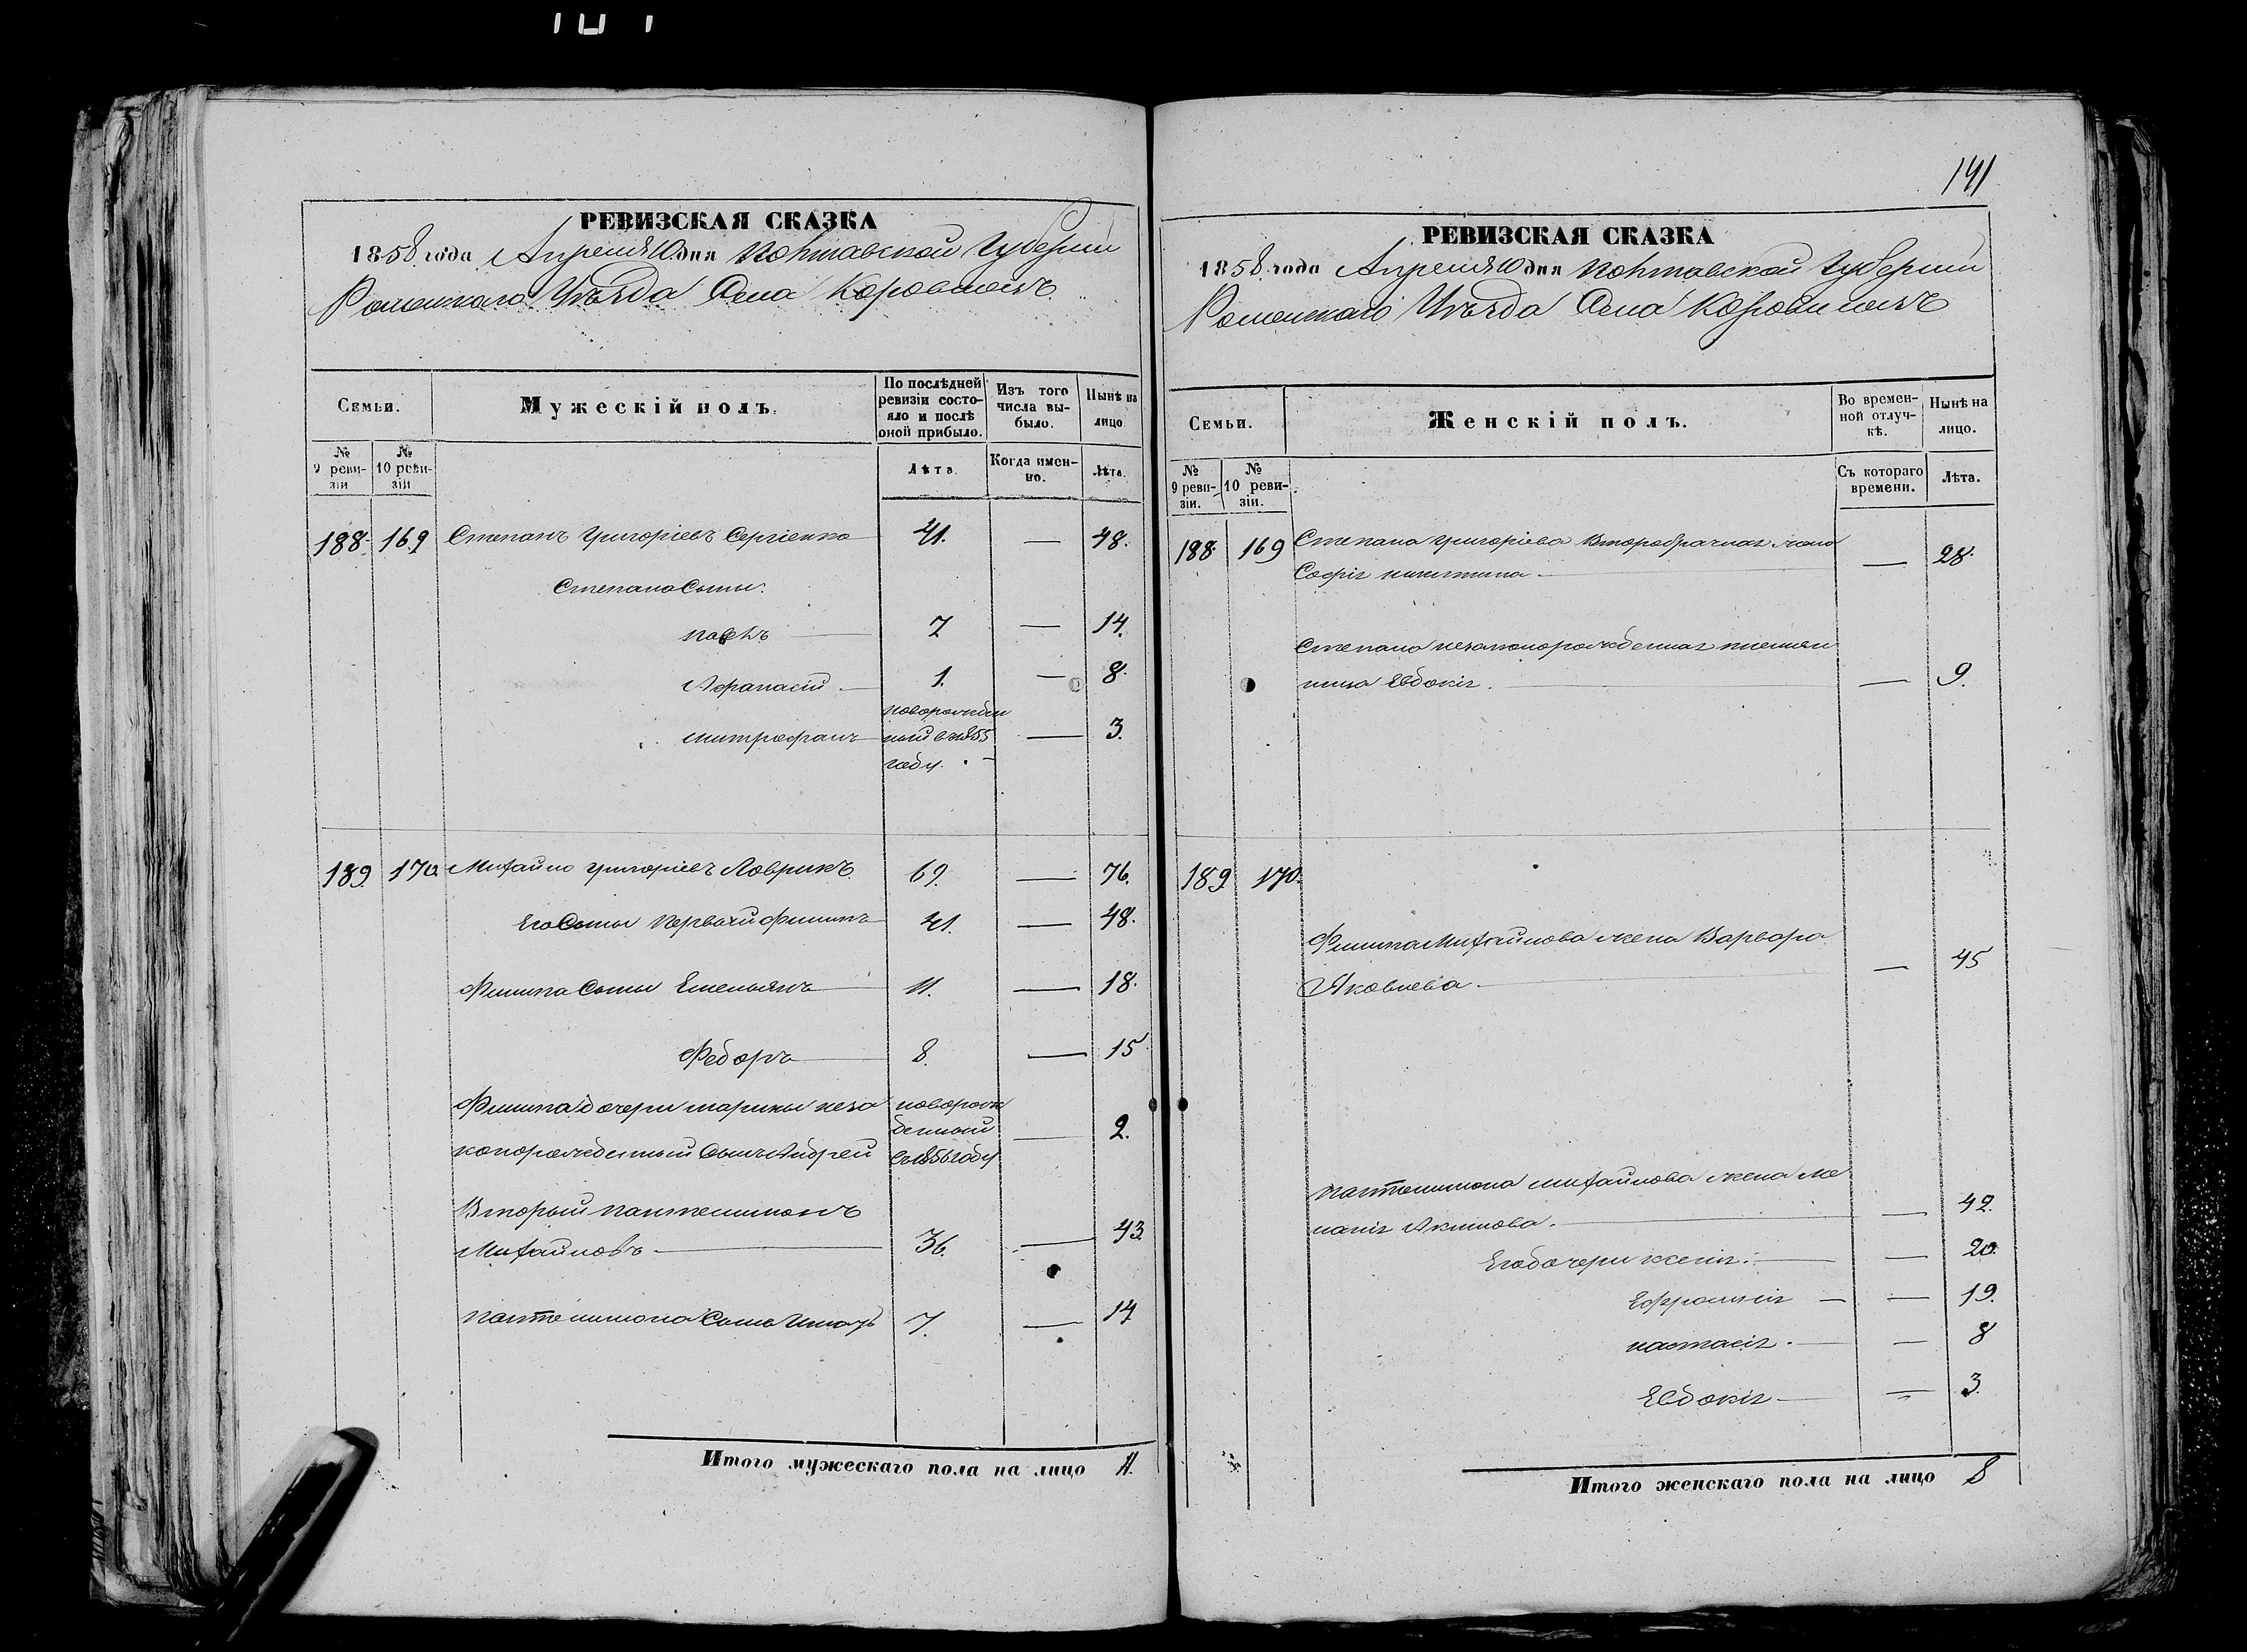 141
РЕВИЗСКАЯ СКАЗКА
1858 года Апреля 10 дня Полтавской Губернии
Роменскаго Уѣзда Села Коровинецъ
Семьи.
Мужескій полъ.
По послѣдней ревизіи состояло и послѣ оной прибыло.
Изъ того числа выбыло.
Нынѣ на лицо
№ 9 ревизіи
№ 10 ревизіи
Лѣта.
Когда именно.
Лѣта.
188. 169 Степанъ Григоріевъ Сергіенко 41. — 48.
Степана Сыны:
7 — 14.
Афанасій 1. — 8.
митрофанъ новорожден — 3.
ный в 1855
году.
189 170 Михайло григоріевъ Лаврикъ 69. — 76.
Его Сыны Первый Филипъ 41. — 48.
Филипа Сыны Емельянъ 11. — 18.
Федоръ 8. — 15
Филипа дочери марины неза новорож
конорожденный Сынъ Андрей денный — 2.
въ 1856 году
Вторый пантелимонъ
Михайловъ 36. — 43.
пантелимона Сынъ Игнатъ 7. — 14
Итого мужескаго пола на лицо 11.
РЕВИЗСКАЯ СКАЗКА
1858 года Апреля 10 дня Полтавской Губернии
Роменскаго Уѣзда Села Коровинецъ
Семьи.
Женскій полъ.
Во временной отлучкѣ.
Нынѣ на лицо.
№ 9 ревизіи.
№ 10 ревизіи.
Съ котораго времени.
Лѣта.
188. 169 Степана григоріева Второбрачная жена
Софія никитина — 28.
Степана незаконорожденная племян
ница Евдокія. — 9.
189 170.
Филипа Михайлова жена Варвара
Яковлева. — 45
пантелимона михайлова жена Ме
ланія Акимова. — 42.
Его дочери ксенія: — 20.
Ефросинія — 19.
настасія. — 8
Евдокія — 3.
Итого женскаго пола на лицо 8